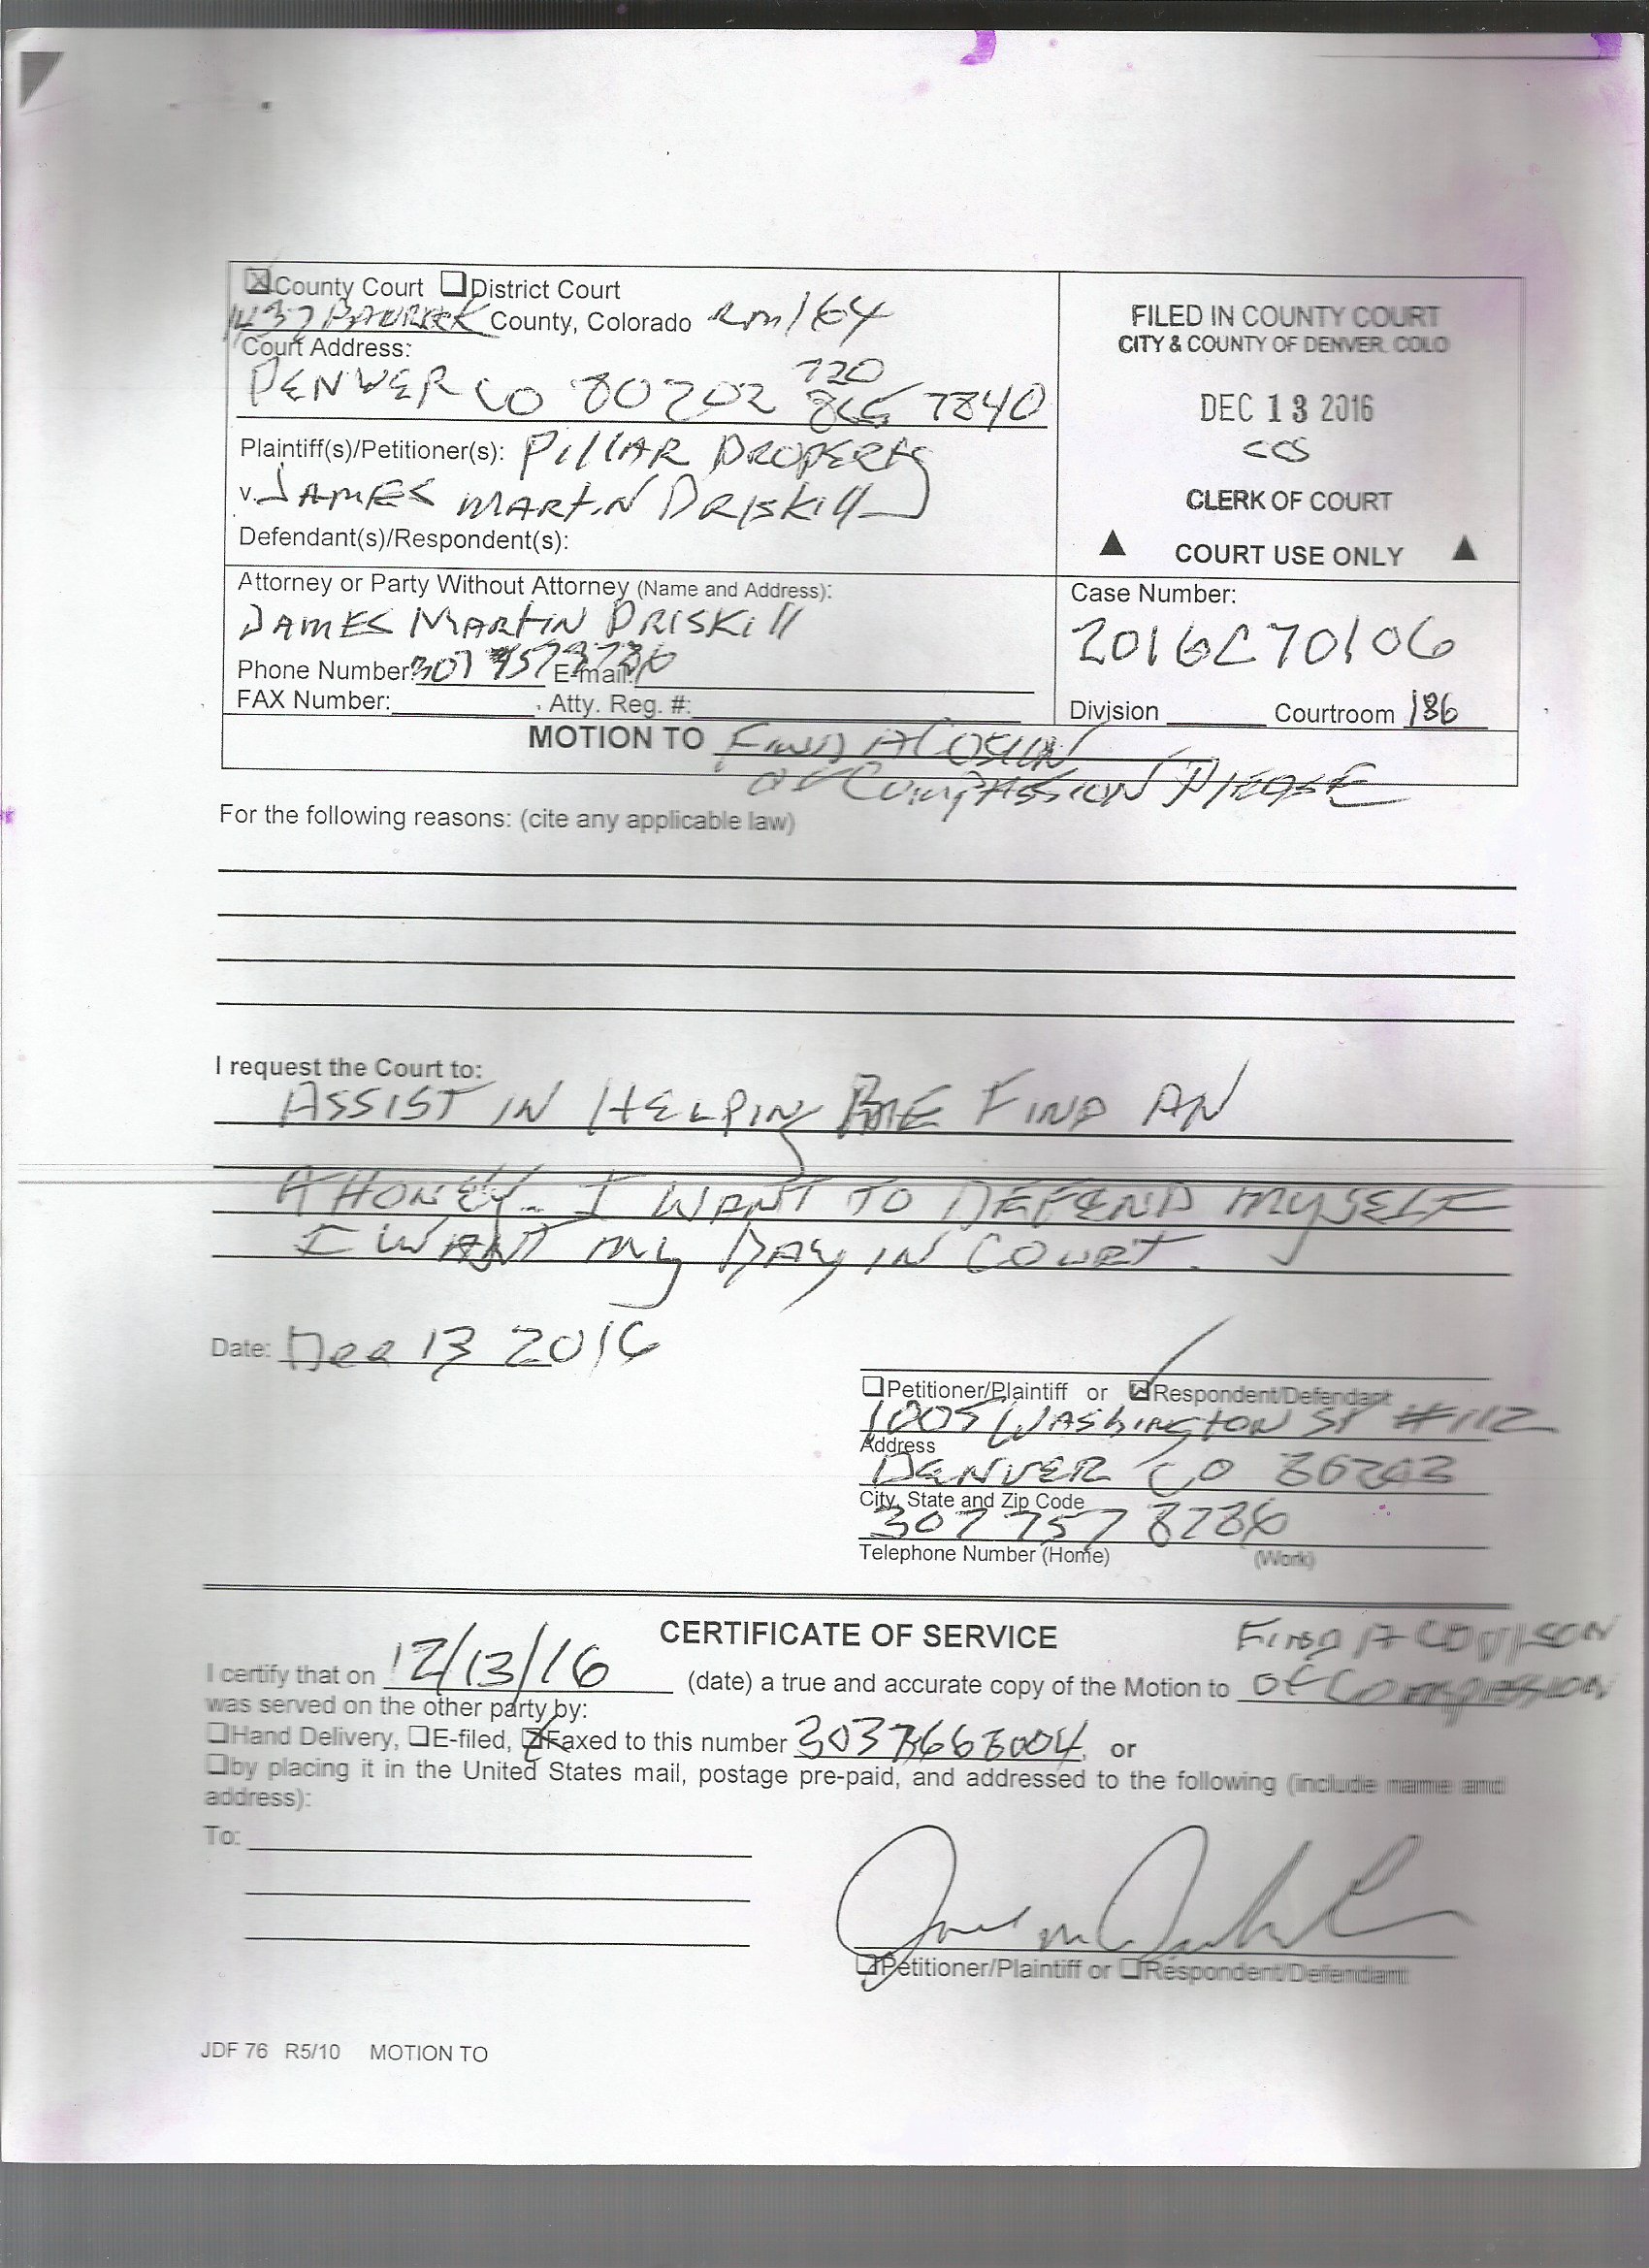 ☒County Court ☐District Court
1437 BANNOCK County, Colorado Rm 164
Court Address:
DENVER CO 80202 720 865 7840
Plaintiff(s)/Petitioner(s): PillAR PROPERty
v. JAMES MARtiN DRiSkill
Defendant(s)/Respondent(s):
FILED IN COUNTY COURT
CITY & COUNTY OF DENVER, COLO
DEC 13 2016
CCS
CLERK OF COURT
▲ COURT USE ONLY ▲
Attorney or Party Without Attorney (Name and Address):
JAMES MARtiN DRISKill
Phone Number: 307 E-mail:
FAX Number: Atty. Reg. #:
Case Number:
2016C70106
Division Courtroom 186
MOTION TO FIND A
OF COMPASSION PLEASE
For the following reasons: (cite any applicable law)
I request the Court to:
ASSIST IN HELPING ME FIND AN
AttoNEY. I WANT TO DEFEND MYSELF
I WANT MY DAY IN COURT.
Date: Dec 13 2016
☐Petitioner/Plaintiff or ☒Respondent/Defendant
1005 WAShiNgtoN St #112
Address
DENVER CO 80203
City, State and Zip Code
307 757 8786
Telephone Number (Home) (Work)
CERTIFICATE OF SERVICE
FIND A
I certify that on 12/13/16 (date) a true and accurate copy of the Motion to OF COMPASSION
was served on the other party by:
☐Hand Delivery, ☐E-filed, ☒Faxed to this number or
☐by placing it in the United States mail, postage pre-paid, and addressed to the following (include name and
address):
To:
☐Petitioner/Plaintiff or ☐Respondent/Defendant
JDF 76 R5/10 MOTION TO